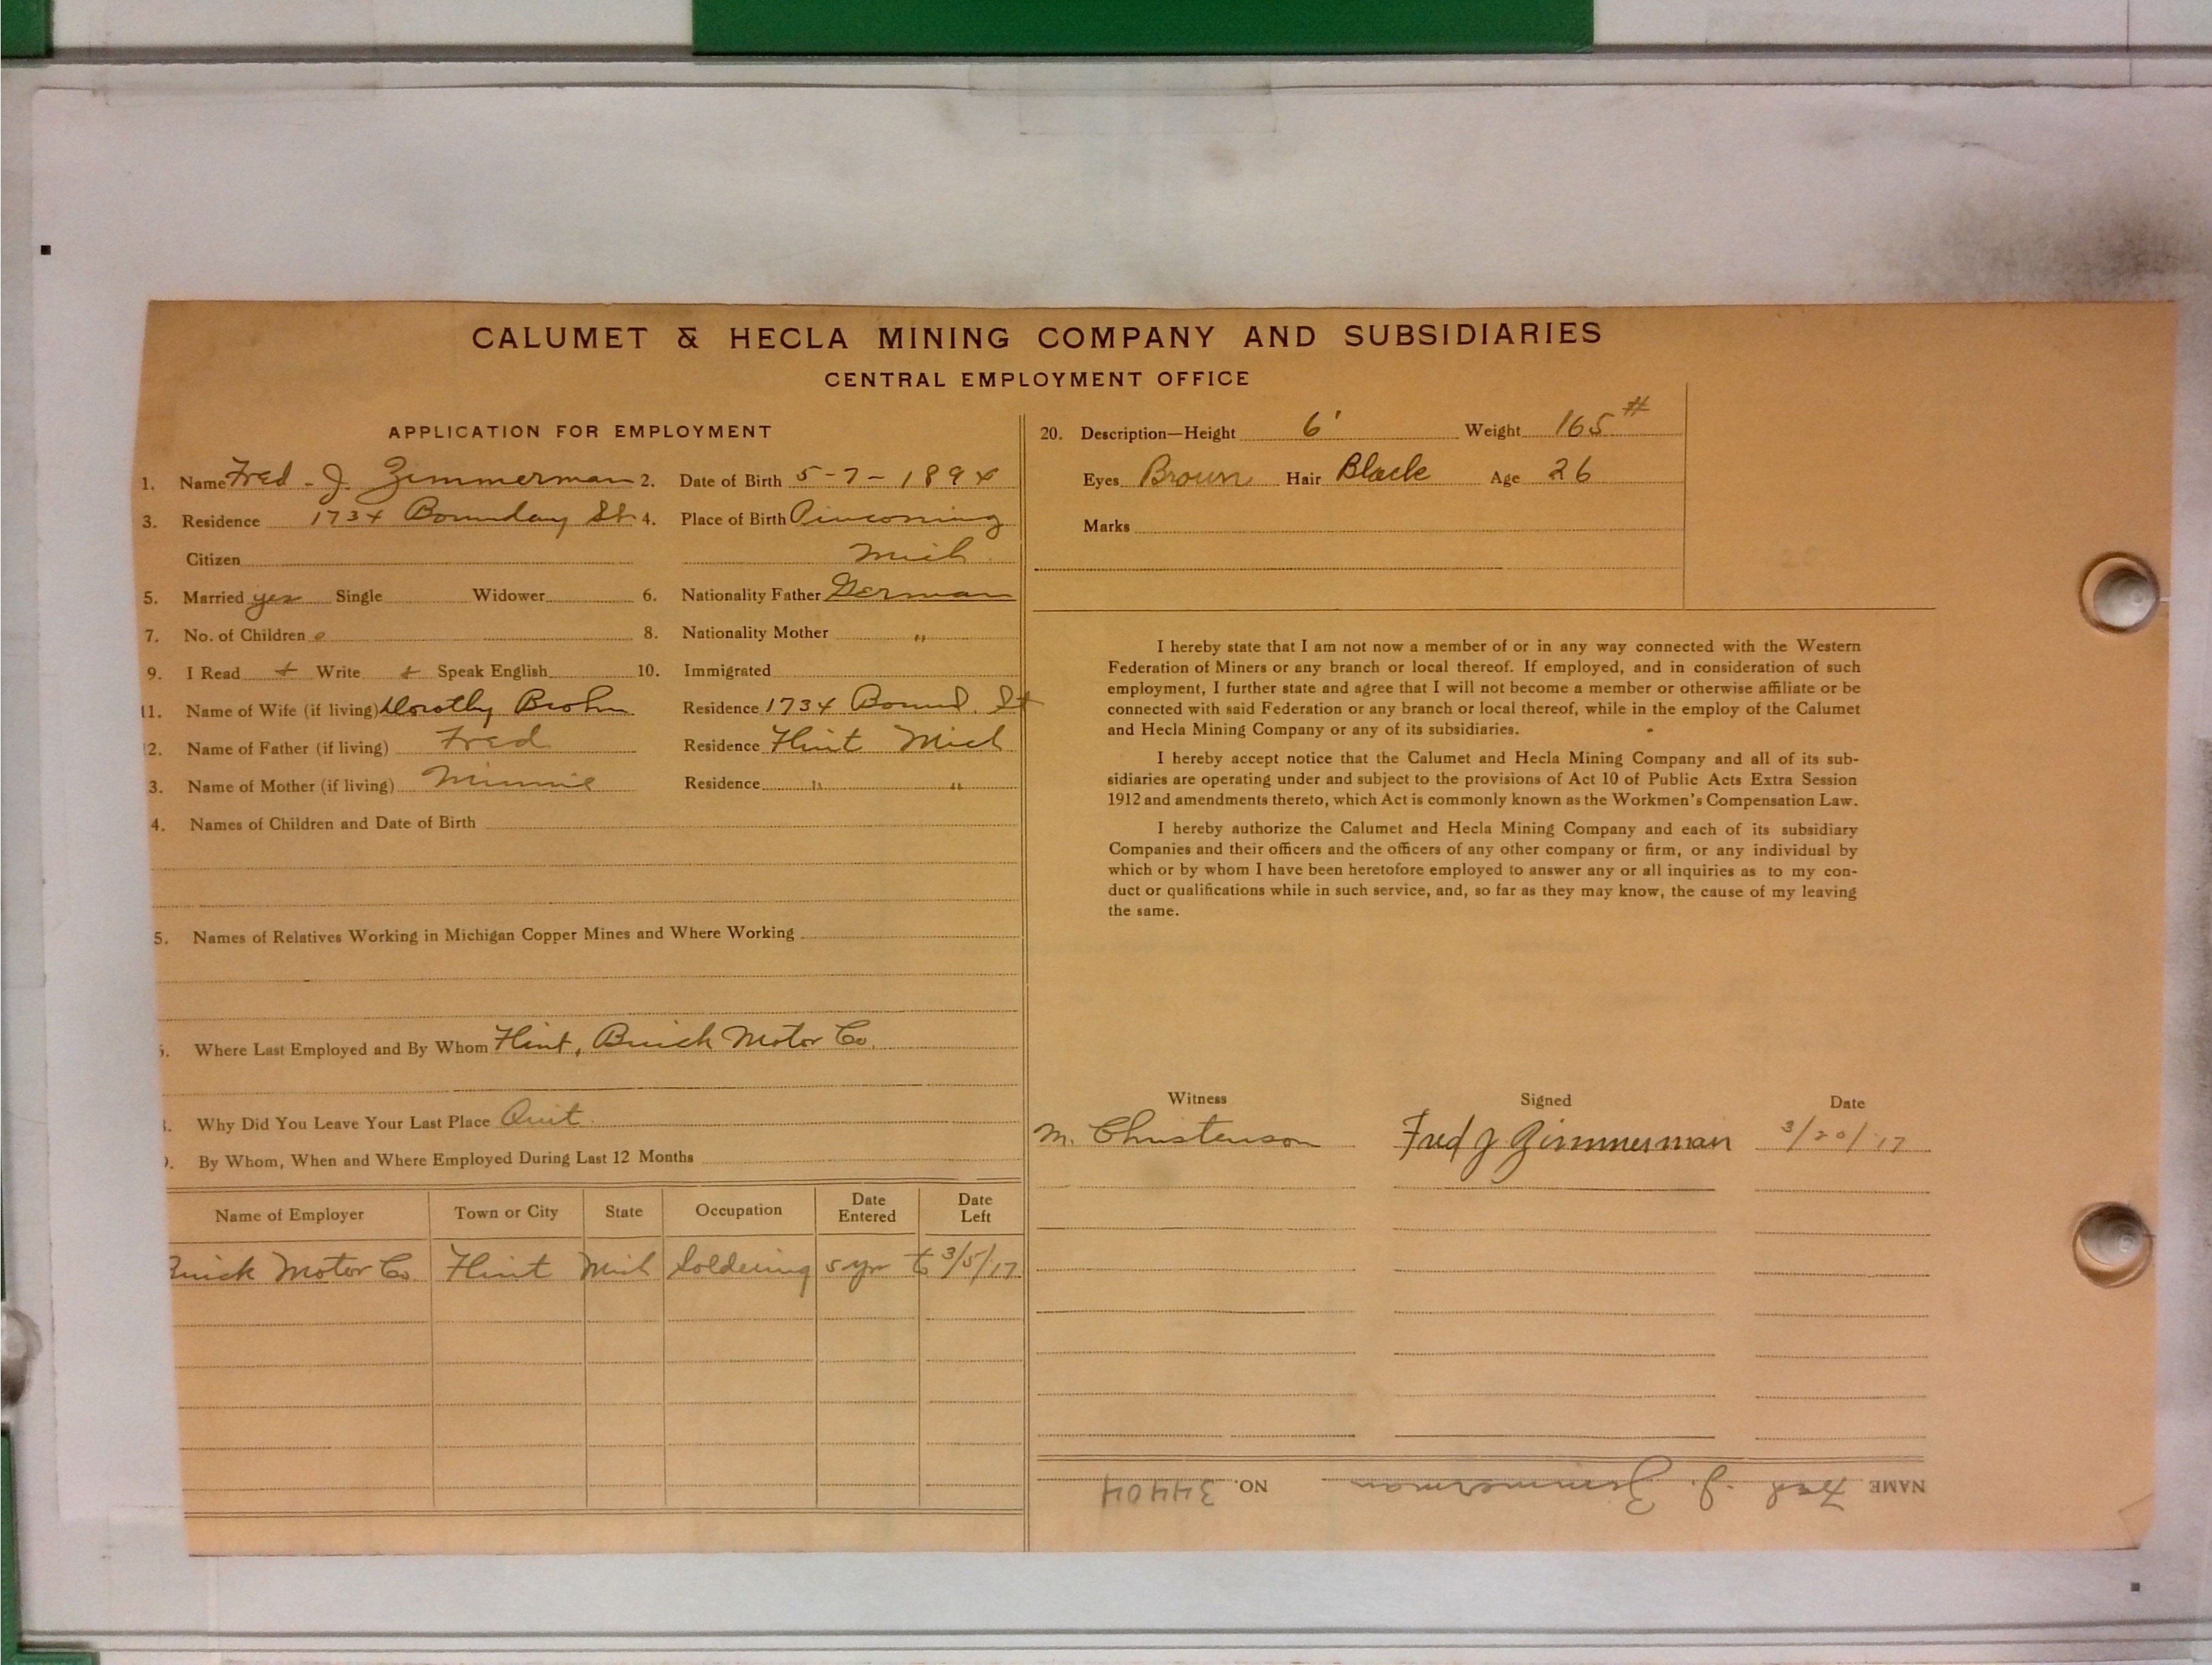 CALUMET & HECLA MINING COMPANY AND SUBSIDIARIES
CENTRAL EMPLOYMENT OFFICE
APPLICATION FOR EMPLOYMENT
1. Name Fred - J. Zimmerman 2. Date of Birth 5-7-1894
3. Residence 1734 St. 4. Place of Birth Pinconning
Citizen Mich.
5. Married yes Single Widower 6. Nationality Father German
7. No. of Children 0 8. Nationality Mother "
9. I Read + Write + Speak English 10. Immigrated
11. Name of Wife (if living) Dorothy Residence 1734 Bound. St
2. Name of Father (if living) Fred Residence Flint Mich
3. Name of Mother (if living) Minnie Residence " "
4. Names of Children and Date of Birth
5. Names of Relatives Working in Michigan Copper Mines and Where Working
Where Last Employed and By Whom Flint, Buick Motor Co.
Why Did You Leave Your Last Place Quit.
By Whom, When and Where Employed During Last 12 Months
Name of Employer Town or City State Occupation Date Entered Date Left
Buick Motor Co. Flint Mich Soldering 5 yr to 3/5/17
20. Description—Height 6' Weight 165#
Eyes Brown Hair Black Age 26
Marks
I hereby state that I am not now a member of or in any way connected with the Western
Federation of Miners or any branch or local thereof. If employed, and in consideration of such
employment, I further state and agree that I will not become a member or otherwise affiliate or be
connected with said Federation or any branch or local thereof, while in the employ of the Calumet
and Hecla Mining Company or any of its subsidiaries.
I hereby accept notice that the Calumet and Hecla Mining Company and all of its sub-
sidiaries are operating under and subject to the provisions of Act 10 of Public Acts Extra Session
1912 and amendments thereto, which Act is commonly known as the Workmen's Compensation Law.
I hereby authorize the Calumet and Hecla Mining Company and each of its subsidiary
Companies and their officers and the officers of any other company or firm, or any individual by
which or by whom I have been heretofore employed to answer any or all inquiries as to my con-
duct or qualifications while in such service, and, so far as they may know, the cause of my leaving
the same.
Witness Signed Date
M. Christenson Fred J Zimmerman 3/20/17
NAME Fred - J. Zimmerman NO. 34404